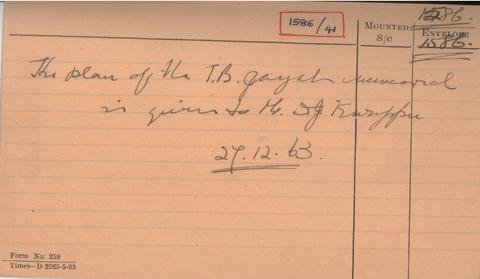 1586/41
MOUNTED
S/C
1586.
ENVELOPE
1586.
The plan of the T.B. Jayah memorial
is given to Mr. D J Kuruppu
27.12.63.
Form No: 259
Times—D 2265-5-63